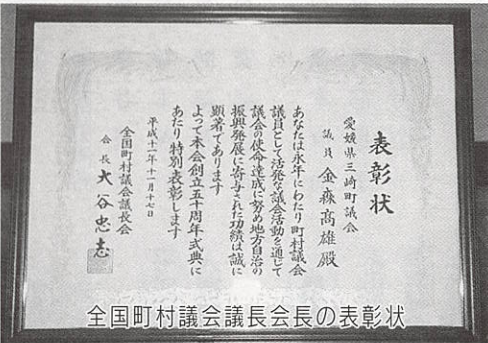 表彰状
愛媛県三崎町議会
議員 金森高雄殿
あなたは永年にわたり町村議会
議員として活発な議会活動を通じて
議会の使命達成に努め地方自治の
振興発展に寄与された功績は誠に
顕著であります
よって本会創立五十周年式典に
あたり特別表彰します
平成十一年十一月十七日
全国町村議会議長会
会長 大谷忠志
全国町村議会議長会長の表彰状